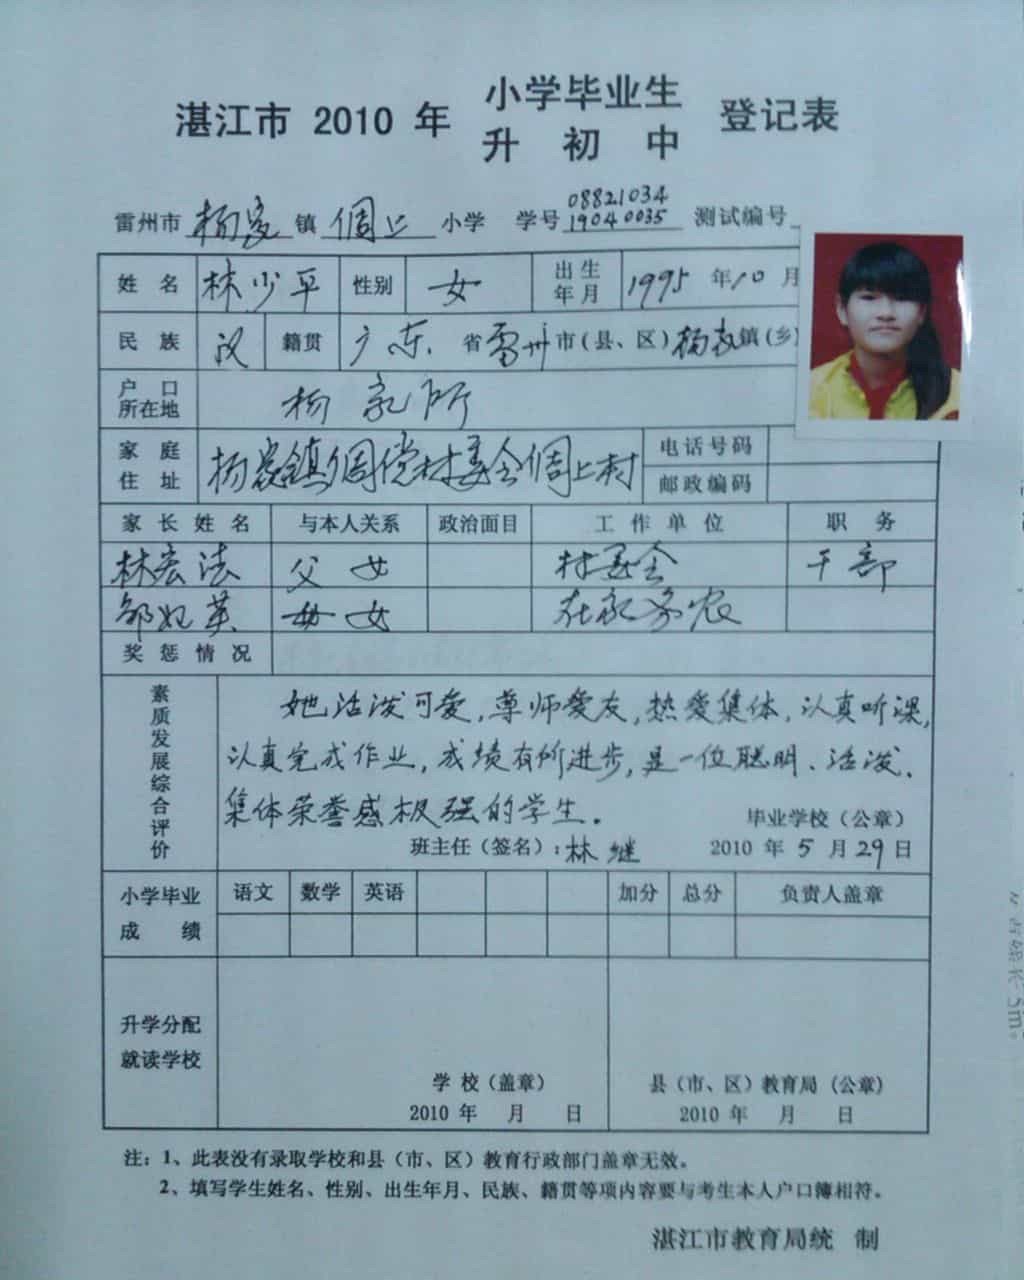 湛江市 2010 年 小学毕业生 登记表
升 初 中
08821034
雷州市 杨家 镇 倜上 小学 学号 19040035 测试编号
姓 名 林少平 性别 女 出生年月 1995 年 10 月
民 族 汉 籍贯 广东 省 雷州 市(县、区) 杨家 镇(乡)
户 口 所在地 杨家所
家 庭 住 址 杨家镇 村委会 上村 电话号码
邮政编码
家 长 姓 名 与本人关系 政治面目 工 作 单 位 职 务
林宏法 父女 村委会 干部
邹妃英 母女 在家务农
奖 惩 情 况
素质发展综合评价
她活泼可爱,尊师爱友,热爱集体,认真听课,
认真完成作业,成绩有所进步,是一位聪明、活泼、
集体荣誉感极强的学生.
毕业学校(公章)
班主任(签名):林继 2010 年 5 月 29 日
小学毕业 语文 数学 英语 加分 总分 负责人盖章
成 绩
升学分配
就读学校
学 校(盖章) 县(市、区)教育局(公章)
2010 年 月 日 2010 年 月 日
注: 1、此表没有录取学校和县(市、区)教育行政部门盖章无效。
2、填写学生姓名、性别、出生年月、民族、籍贯等项内容要与考生本人户口簿相符。
湛江市教育局统 制